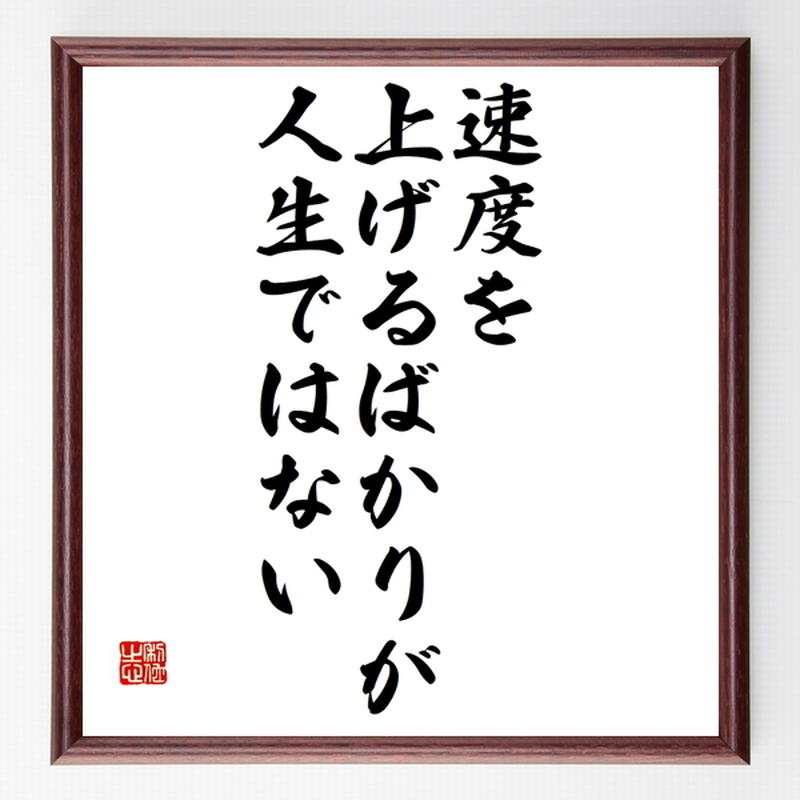 速度を
上げるばかりが
人生ではない